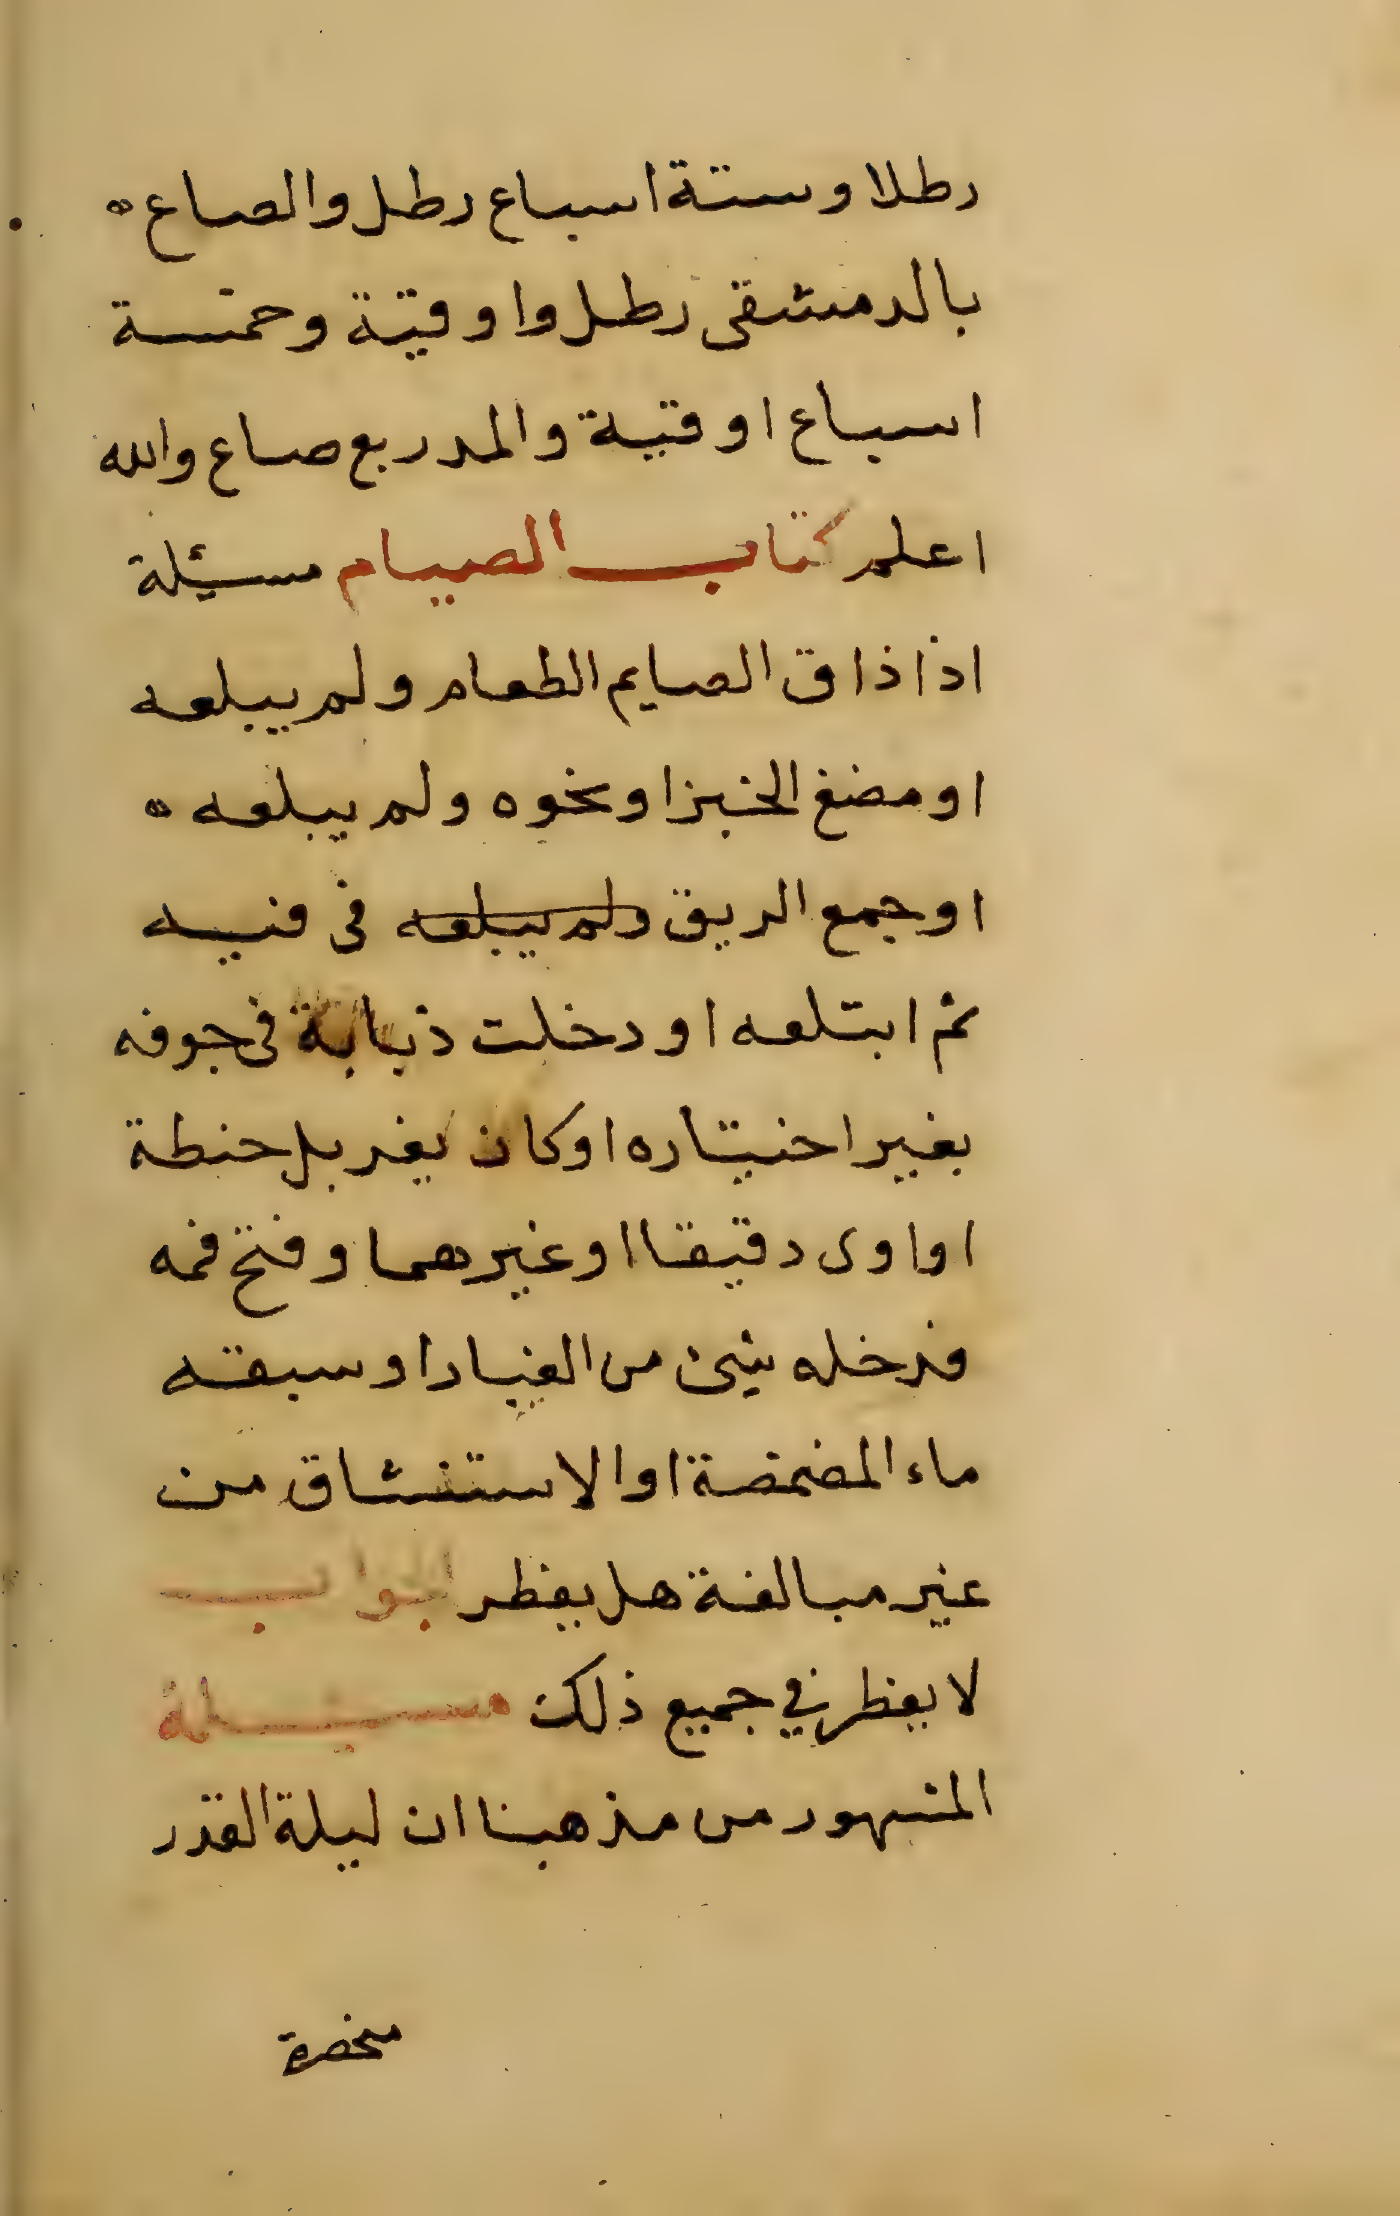 رطلا وستة اسباع رطل والصاع ه
بالدمشقى رطل واوقية وخمسة
اسباع اوقية والمد ربع صاع والله
اعلم كتاب الصيام مسئلة
اذا ذاق الصايم الطعام ولم يبلعه
او مضغ الخبز او نحوه ولم يبلعه ه
او جمع الريق ولم يبلعه فى فيه
ثم ابتلعه او دخلت ذبابة فى جوفه
بغير اختياره او كان يغربل حنطة
او اوى دقيقا او غيرهما وفتح فمه
فدخله شئ من الغبار او سبقه
ماء المضمضة او الاستنشاق من
غير مبالغة هل يفطر الجواب
لا يفطر في جميع ذلك مسئلة
المشهور من مذهبنا ان ليلة القدر
منحصرة